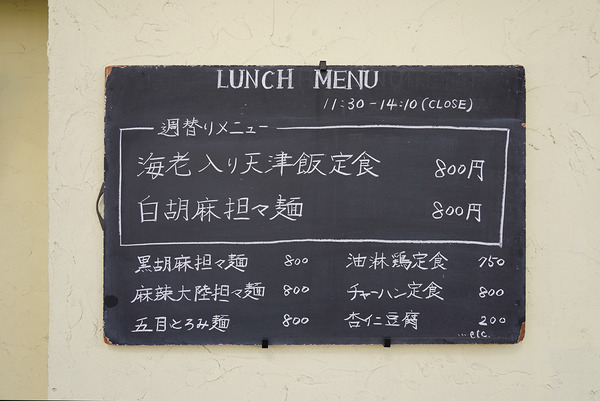 LUNCH MENU
11:30-14:10 (CLOSE)
週替りメニュー
海老入り天津飯定食 800円
白胡麻担々麺 800円
黒胡麻担々麺 800 油淋鶏定食 750
麻辣大陸担々麺 800 チャーハン定食 800
五目とろみ麺 800 杏仁豆腐 200
...etc.